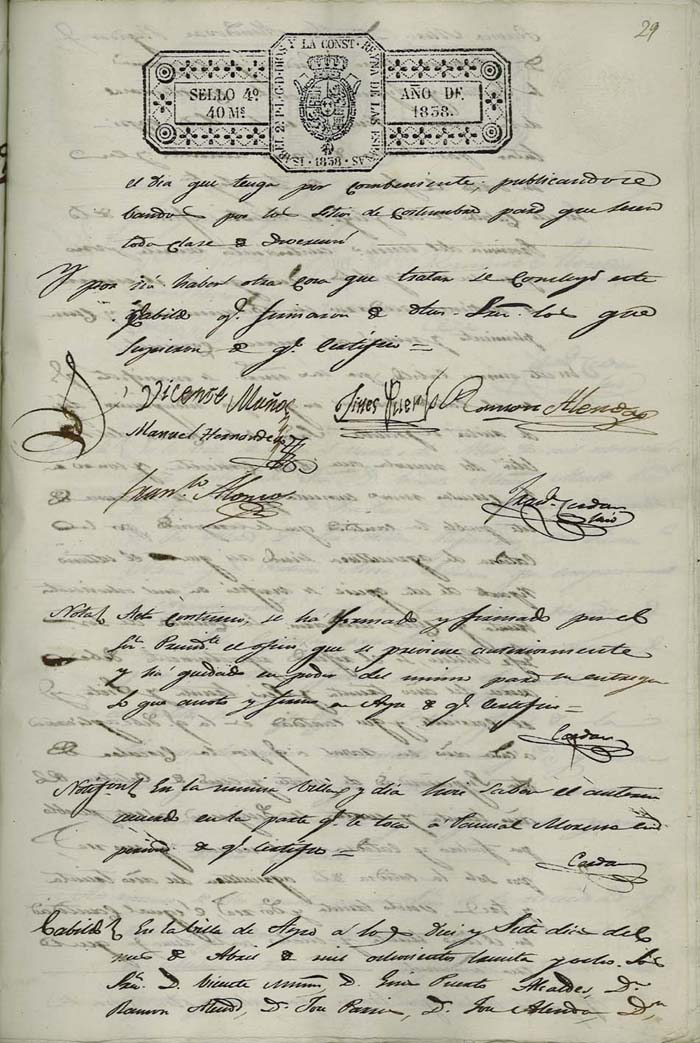 29
ISABEL 2ª P.L.G.D. DIOS Y LA CONST. REYNA DE LAS ESPAÑAS
SELLO 4º AÑO DE
40 Ms. 1838.
1838
el dia que tenga por combeniente, publicandose
bandos por los Sitios de Costumbre para que
toda clase
Y por no haber otra cosa que tratar se concluyó este
Cabildo qe. firmaron de dhos. Sres. los que
supieron de qe. Certifico =
Vicente Muños Gines Puerto Ramon Alenda
Manuel Hernandez
Franco. Alonso
Cerdan
Srio
Nota Acto continuo, se ha formado y firmado por el
Sor. Presidte. el oficio que se previene anteriormente
y ha quedado en poder del mismo para su entrega
Lo que anoto y firmo en Aspe de qe. Certifico =
Cerdan
En la misma Villa y dia hice saber el anterior
acuerdo en la parte qe. le toca a Pascual Moreno en
persona de qe. Certifico =
Cerdan
Cabildo En la Villa de Aspe a los Diez y Siete dias del
mes de Abril de mil ochocientos treinta y ocho. Los
Sres. D. Vicente Muños, D. Gines Puerto Alcaldes, Dn.
Ramon Alenda, D. Jose D. Jose Alenda Dn